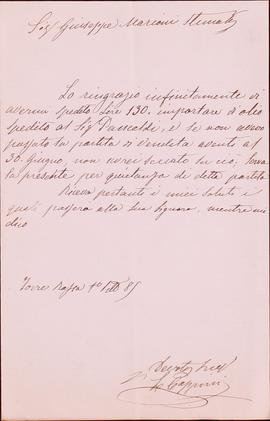 Sig Giuseppe Marconi Stimat
La ringrazio infinitamente di
avermi spedito Lire 130. importare d'olio
spedito al Sig , e se non avessi
pensato su partita di vendita avanti al
30. Giugno, non avrei seccato su ciò, serva
la presente per quietanza di detta partita
Riceva pertanto i miei saluti e
quelli passerà alla sua Signora, mentre mi
dico
Torre 85